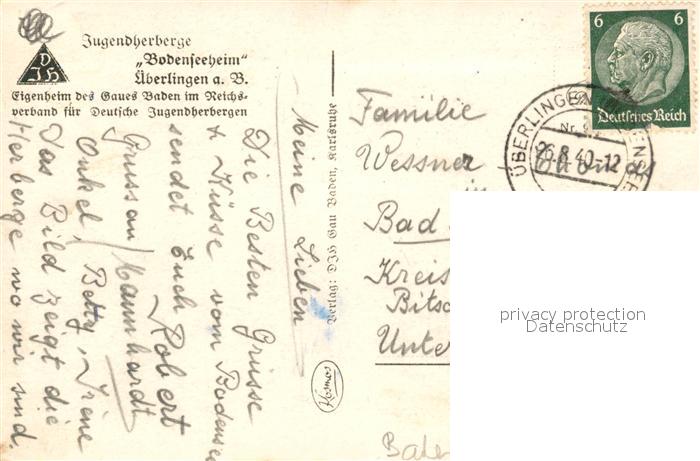 Jugendherberge
„Bodenseeheim"
Überlingen a. B.
Eigenheim des Gaues Baden im Reichs-
verband für Deutsche Jugendherbergen
DJH
Meine Lieben
Die Besten Grüsse
& Küsse vom Bodensee
sendet Euch Robert
Gruss an Mannhardt
Onkel, Betty, Irene
Das Bild zeigt die
Herberge wo wir sind.
Verlag: DJH Gau Baden, Karlsruhe
Kosmos
6 6
Deutsches Reich
ÜBERLINGEN
26.8.40-12
Familie
Wessner
Bad
Kreis
Bitsch
Unte
Baden
privacy protection
Datenschutz